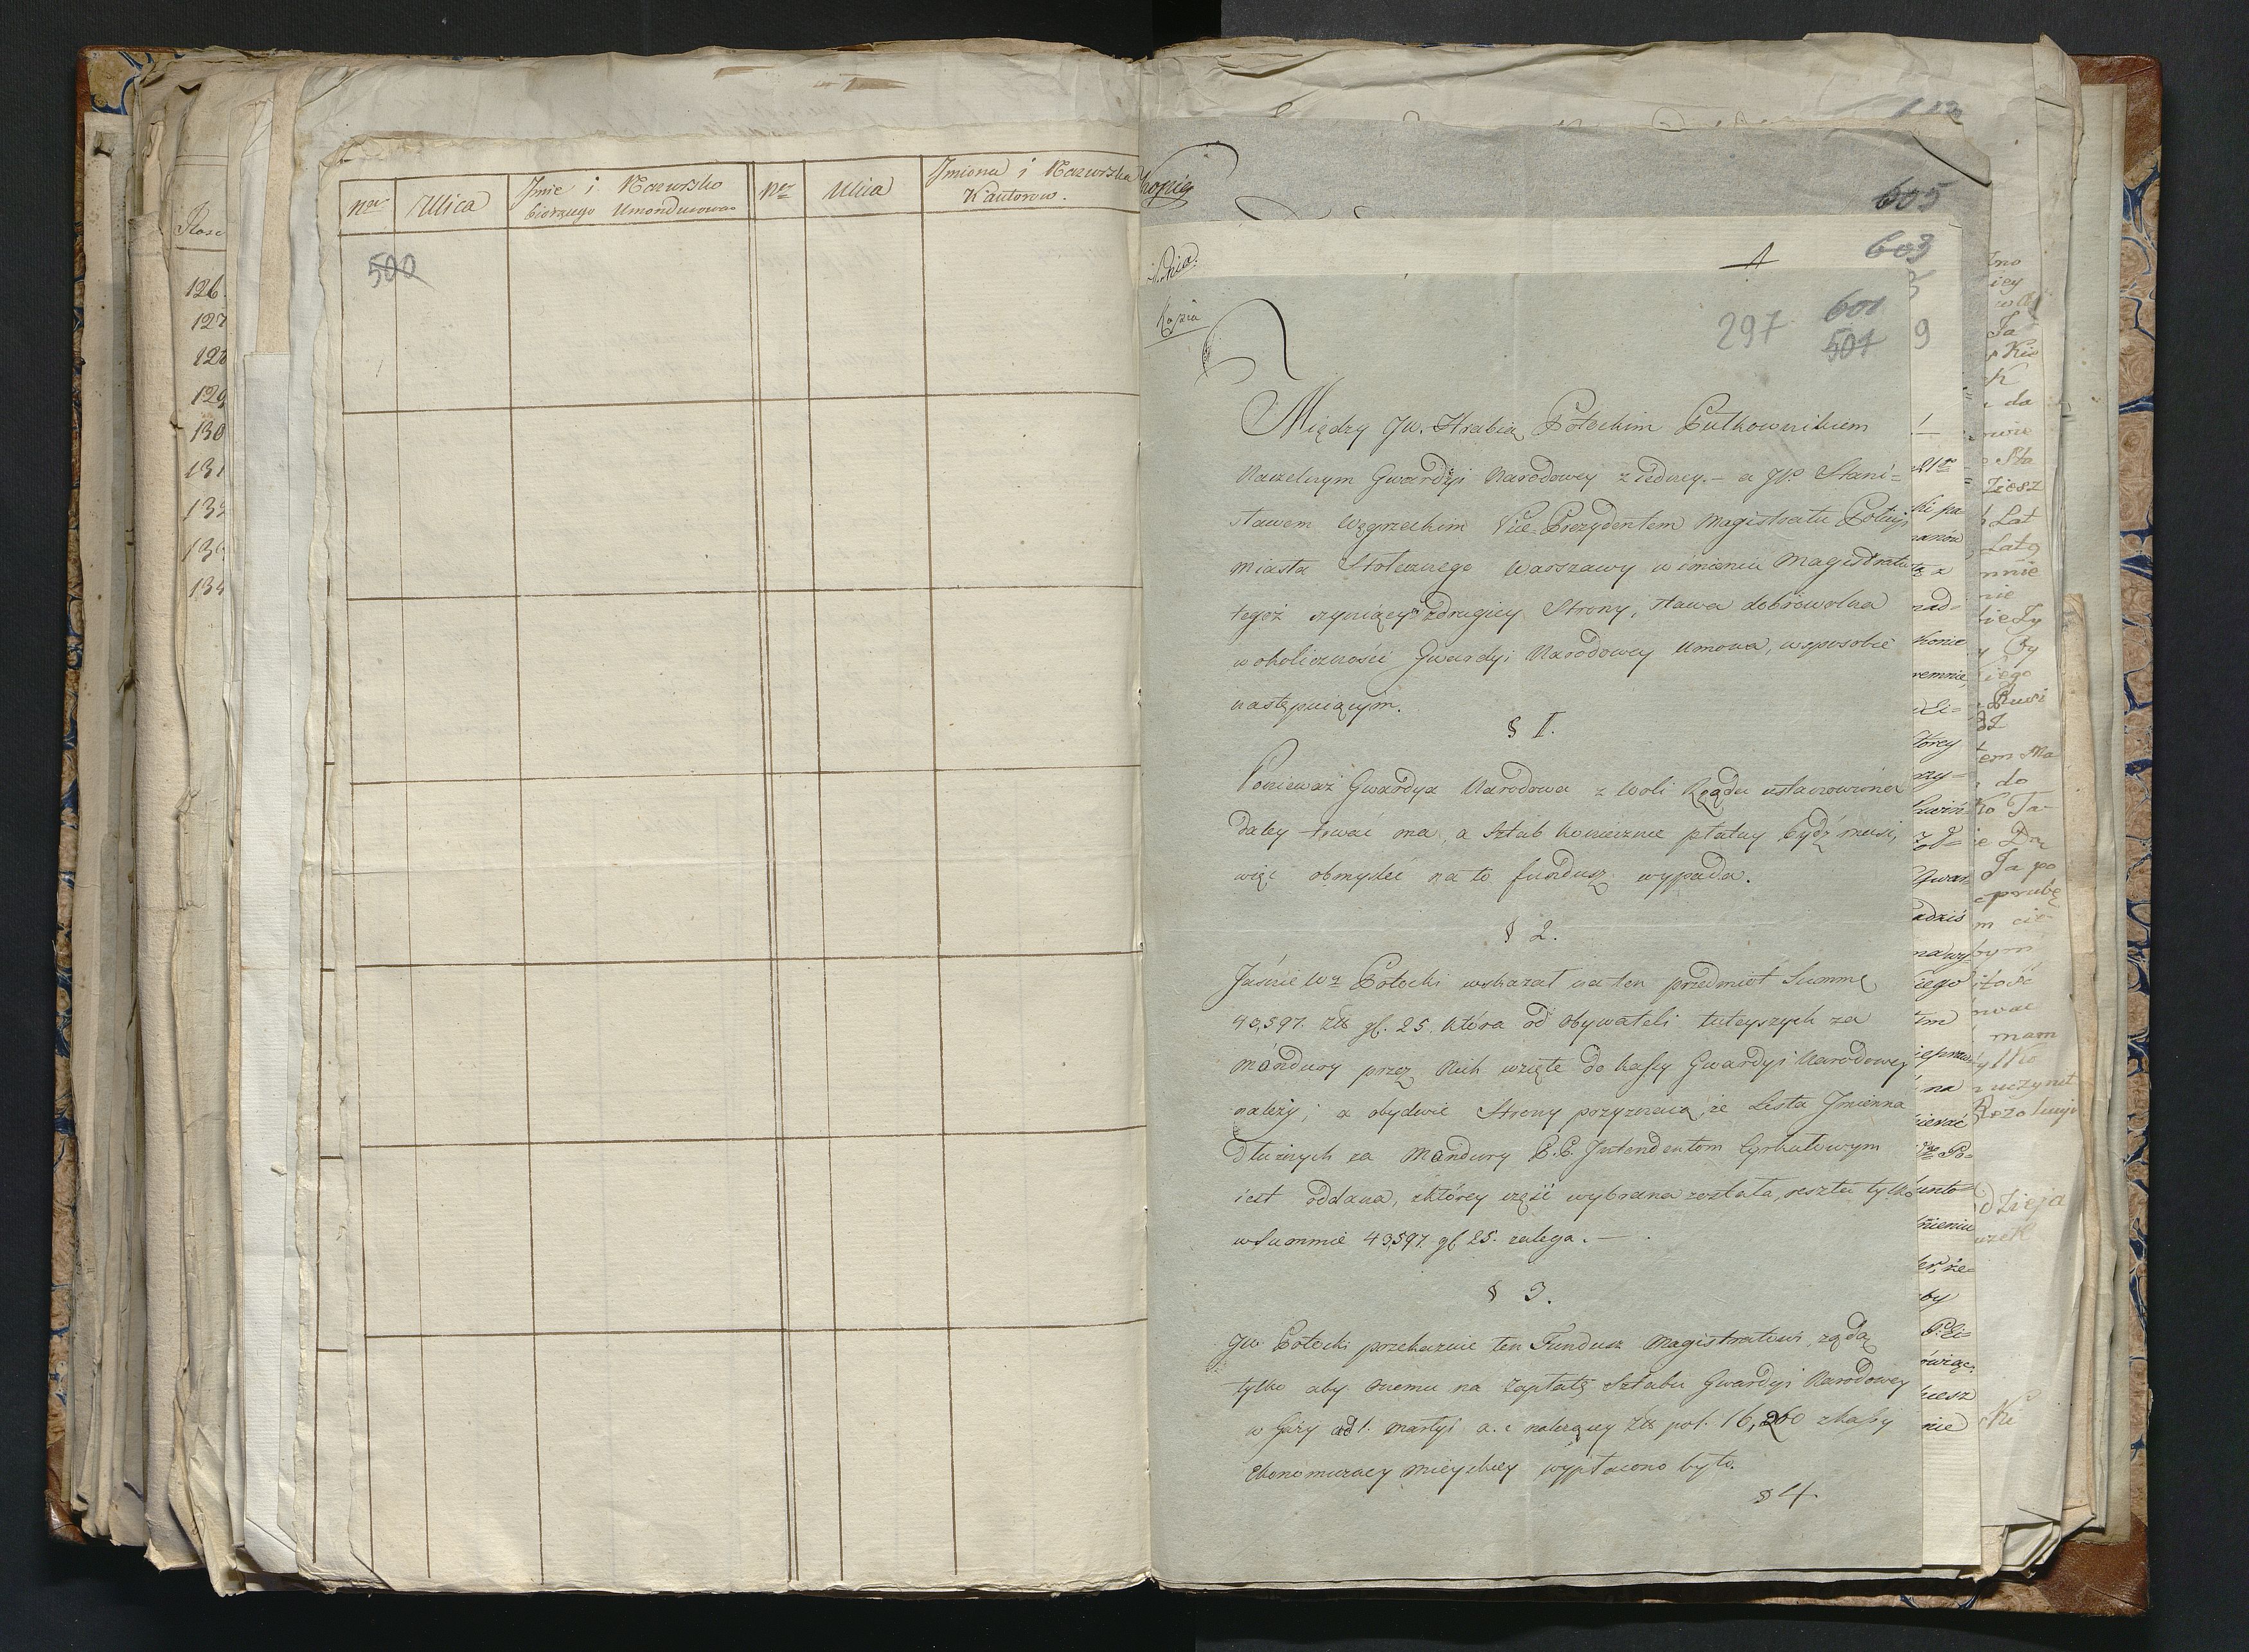 Nro Ulica Jmie i Nazwisko biorącego Umondurowan Nro Ulica Jmiona i Nazwiska Kautorow.
500
126.
127
128
129
130
131
132
134
605
603
Kopia
601
297 501
Między JW. Hrabią Potockim Pułkownikiem
Naczelnym Gwardyi Narodowey z iedney. – a JP. Stani=
sławem Węgrzeckim Vice Prezydentem Magistratu Policyi
Miasta Stołecznego Warszawy w imieniu Magistratu
tegoż czyniącym zdrugiey Strony, stawa dobrowolna
w okoliczności Gwardyi Narodowey umowa, wsposobie
następuiącym.
§ I.
Ponieważ Gwardya Narodowa z Woli Rządu ustanowiona
daley trwać ma, a Sztab koniecznie płatny bydź musi,
więc obmyśleć na to fundusz wypada.
§ 2.
Jaśnie Wz Potocki wskazał na ten przedmiot Summę
43,597. Złł gl. 25. która od Obywateli tuteyszych za
Mondury przez Nich wzięte do kassy Gwardyi Narodowey
należy; a obydwie Strony przyznaią, że Lista Jmienna
Dłużnych za Mondury P.P. Jntendentom Cyrkułowym
iest oddana, zktórey część wybrana została, reszta tylko
w Summie 43,597. gl 25. zalega. –
§ 3.
JW. Potocki przekazuie ten Fundusz Magistratowi, żąda
tylko aby onemu na Zapłatę Sztabu Gwardyi Narodowey
w Gaży od 1. Martyi a. c. należącey Złł pol. 16,260 zkassy
Ekonomiczney Mieyskiey wypłacono było.
§ 4.